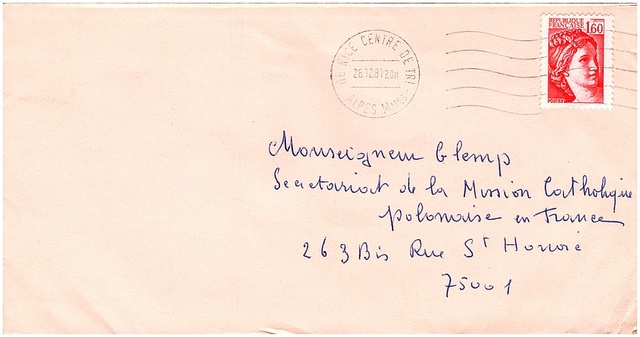 REPUBLIQUE FRANÇAISE 1,60
POSTES
06 NICE CENTRE DE TRI
26.12.81 20H
ALPES Mmes
Monseigneur Glemp
Secretariat de la Mission Catholique
polonaise en France
263 Bis Rue St Honoré
75001